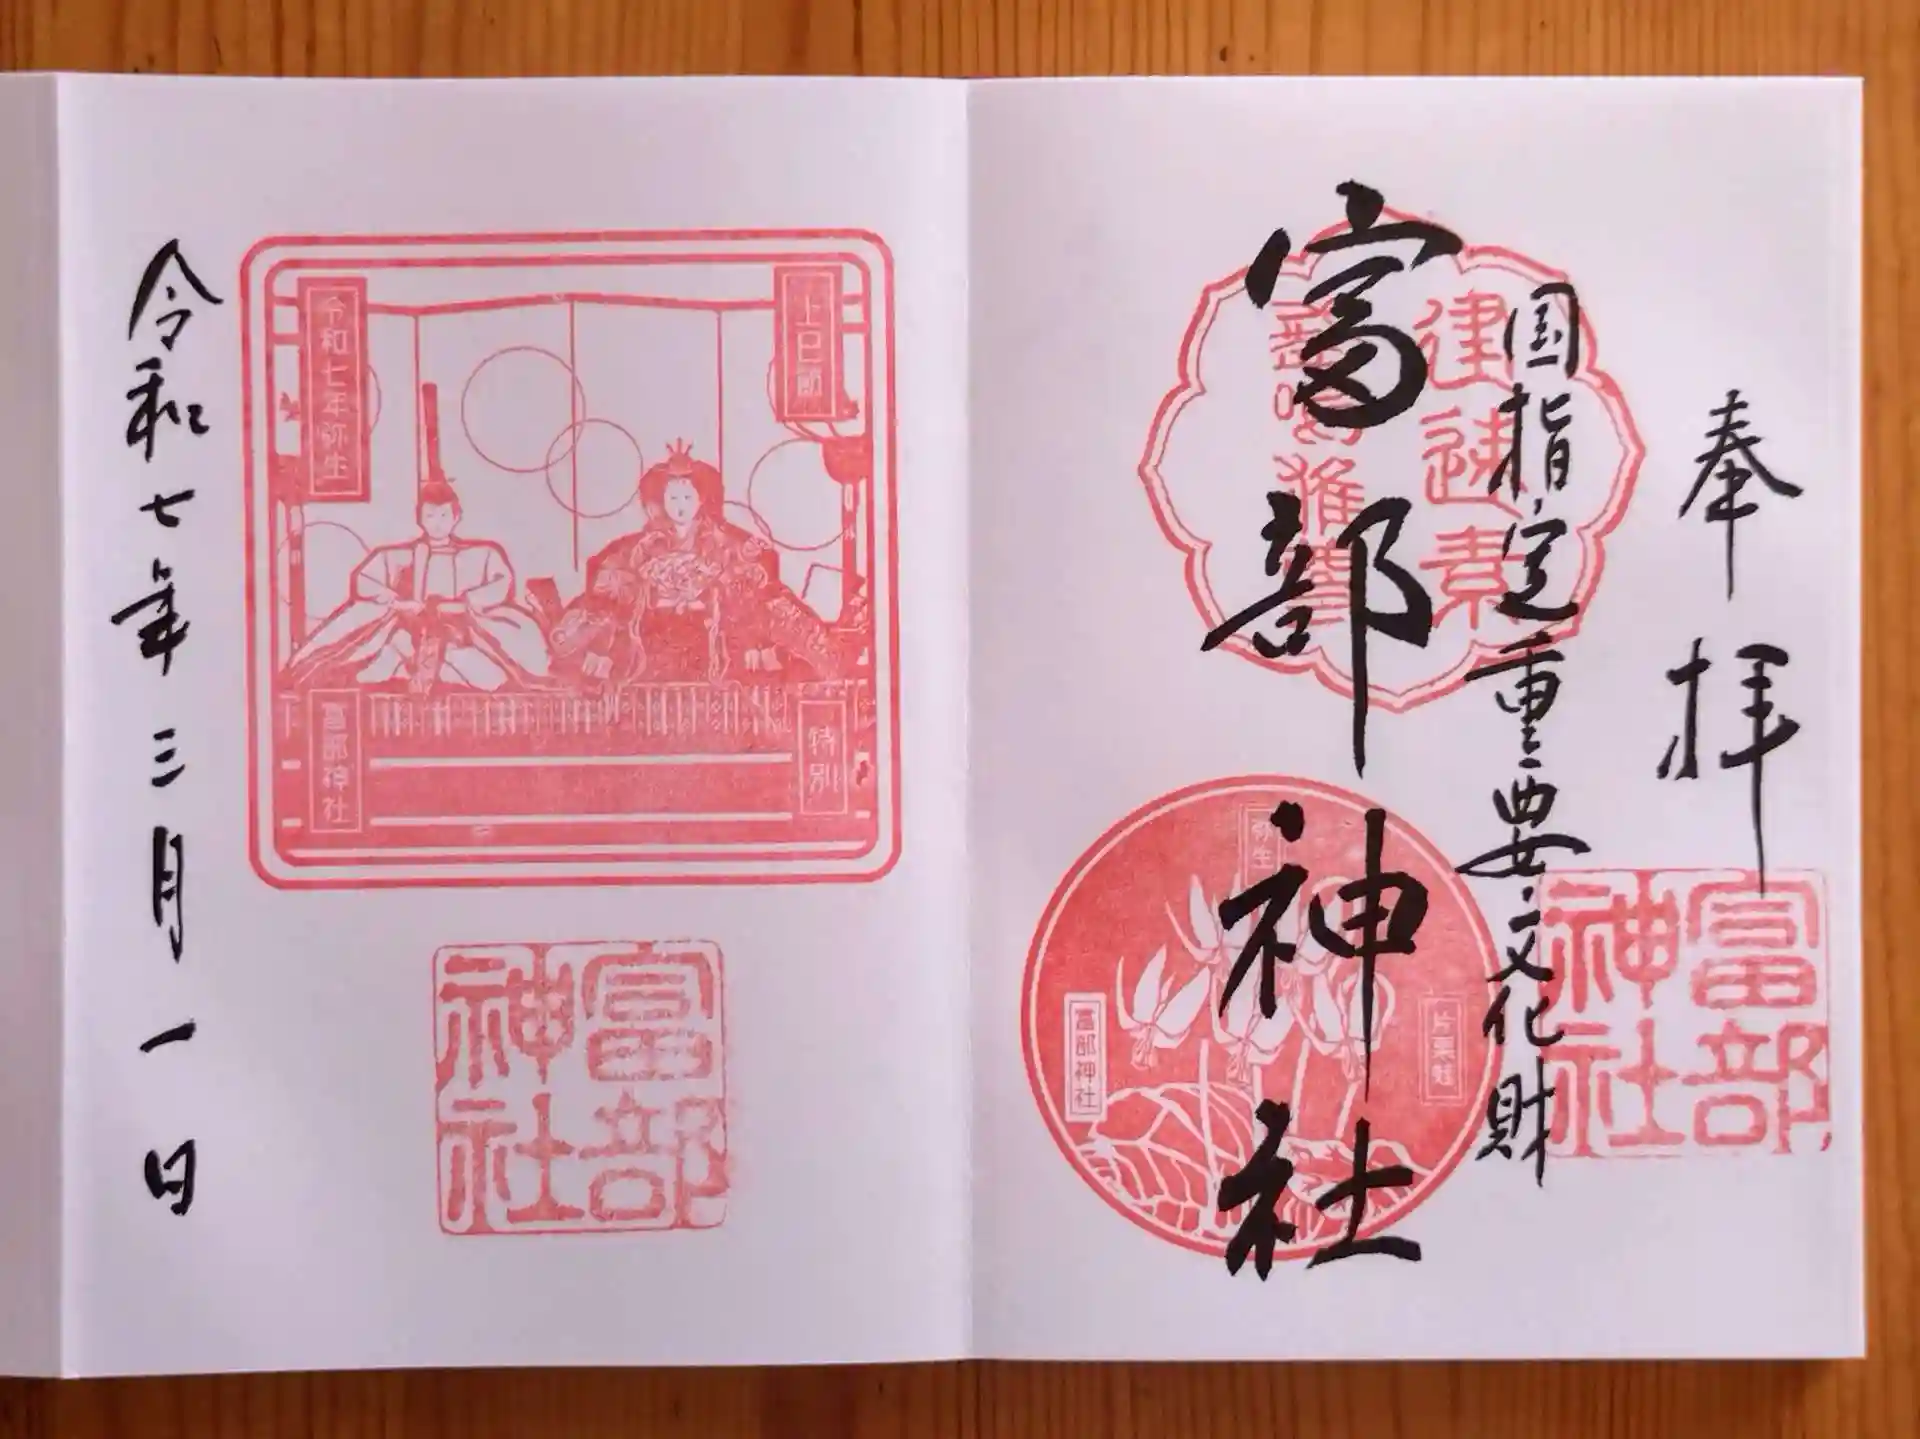 奉拝
国指定重要文化財
富部神社
建速素
富部
神社
弥生
片栗
富部神社
上巳節
令和七年弥生
特別
富部神社
富部
神社
令和七年三月一日